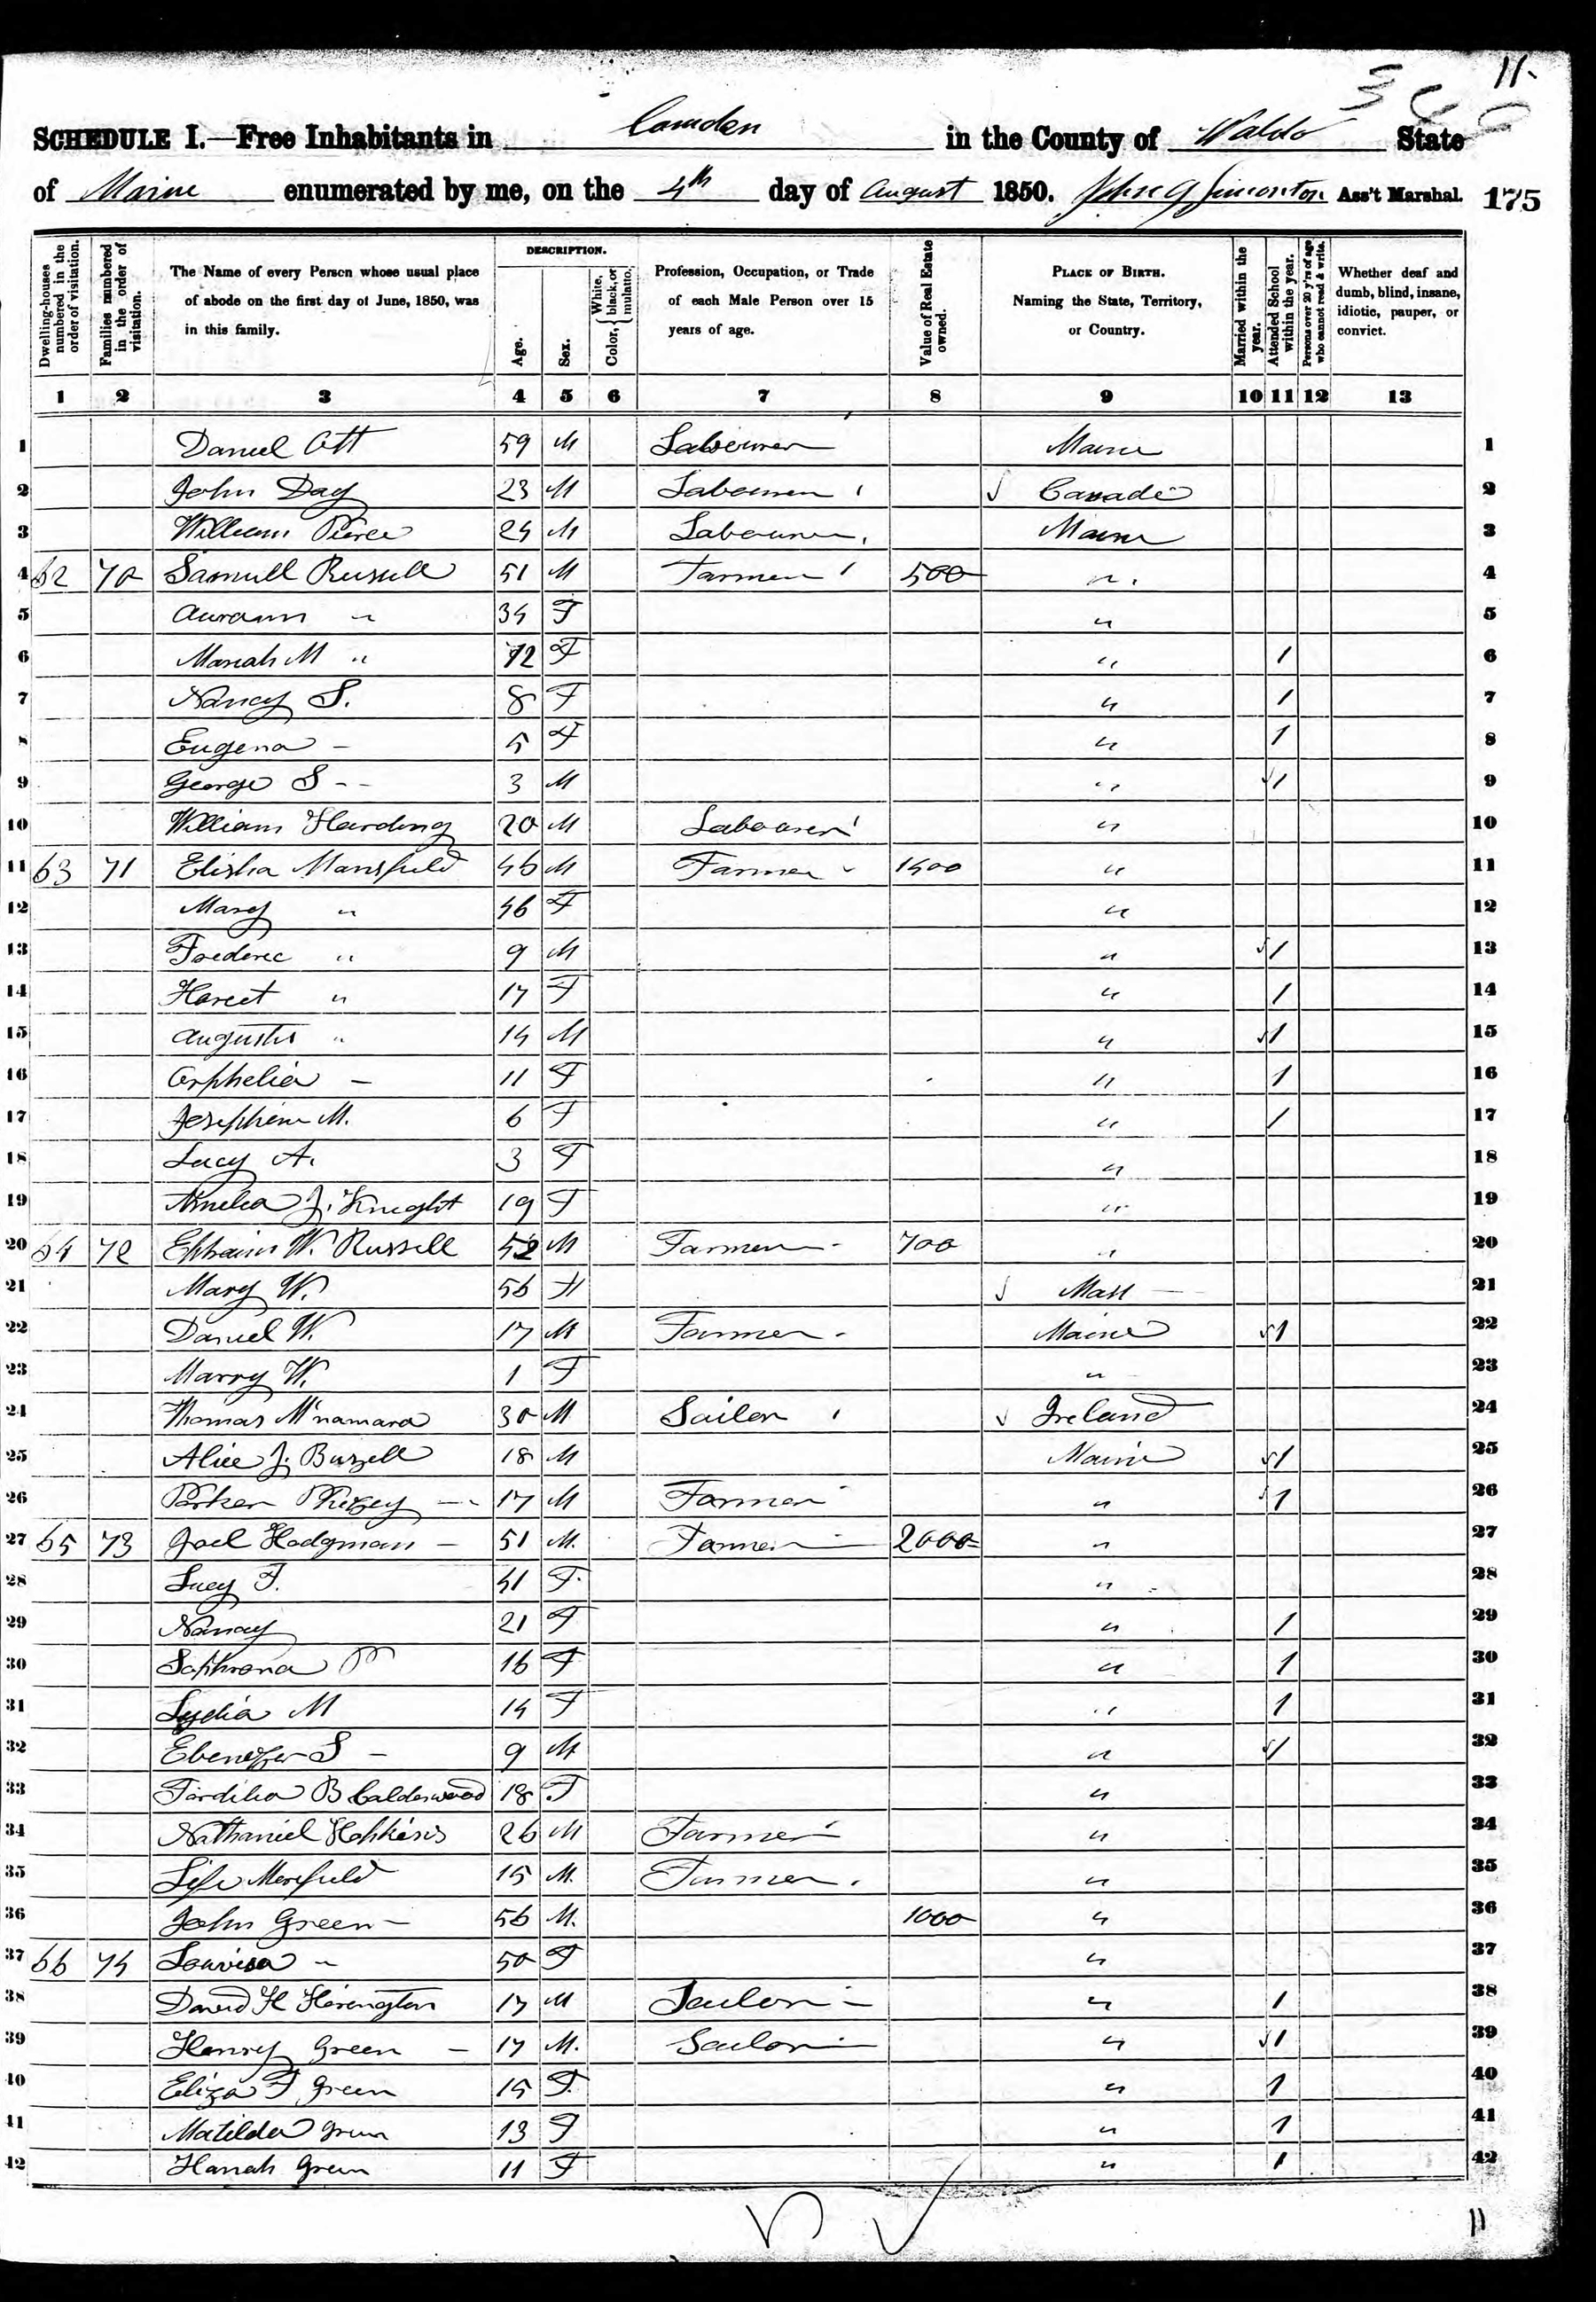 11.
SCHEDULE I.—Free Inhabitants in Camden in the County of Waldo State
of Maine enumerated by me, on the 4th day of August 1850. John G Simonton Ass't Marshal. 175
Dwelling-houses numbered in the order of visitation.
Families numbered in the order of visitation.
The Name of every Person whose usual place of abode on the first day of June, 1850, was in this family.
DESCRIPTION.
Age.
Sex.
Color, { White, black, or mulatto.
Profession, Occupation, or Trade of each Male Person over 15 years of age.
Value of Real Estate owned.
PLACE OF BIRTH. Naming the State, Territory, or Country.
Married within the year.
Attended School within the year.
Persons over 20 y'rs of age who cannot read & write.
Whether deaf and dumb, blind, insane, idiotic, pauper, or convict.
1 2 3 4 5 6 7 8 9 10 11 12 13
1 Daniel Ott 59 M Labourer Maine 1
2 John Day 23 M Labourer Canada 2
3 William Pierce 24 M Labourer Maine 3
4 62 70 Samuell Russell 51 M Farmer 500 " 4
5 Aurann " 34 F " 5
6 Mariah M " 12 F " 1 6
7 Nancy S. 8 F " 1 7
8 Eugena - 5 F " 1 8
9 George S - - 3 M " 1 9
10 William Harding 20 M Labourer " 10
11 63 71 Elisha Mansfield 46 M Farmer 1400 " 11
12 Mary " 46 F " 12
13 Frederic " 9 M " 1 13
14 Hareet " 17 F " 1 14
15 Augustus " 14 M " 1 15
16 Orphelia - 11 F " 1 16
17 Josephine M. 6 F " 1 17
18 Lucy A. 3 F " 18
19 Amelia J. Knight 19 F " 19
20 64 72 Ephraim W. Russell 52 M Farmer 700 " 20
21 Mary W. 56 F Mass 21
22 Daniel W. 17 M Farmer Maine 1 22
23 Marry W. 1 F " 23
24 Thomas M'namara 30 M Sailor Ireland 24
25 Alice J. Buzzell 18 M Maine 1 25
26 Parker 17 M Farmer " 1 26
27 65 73 Joel Hodgman - 51 M. Farmer 2000 " 27
28 Lucy F. 41 F. " 28
29 Nancy 21 F " 1 29
30 Sophrona P 16 F " 1 30
31 Lydia M 14 F " 1 31
32 Ebenezer S - 9 M " 1 32
33 B Calderwood 18 F " 33
34 Nathaniel Hopkins 26 M Farmer " 34
35 15 M. Farmer " 35
36 John Green - 56 M. 1000 " 36
37 66 74 Louvisa " 50 F " 37
38 David H Harington 17 M Sailor " 1 38
39 Henry Green - 17 M. Sailor " 1 39
40 Eliza F Green 15 F. " 1 40
41 Matilda Green 13 F " 1 41
42 Hanah Green 11 F " 1 42
11